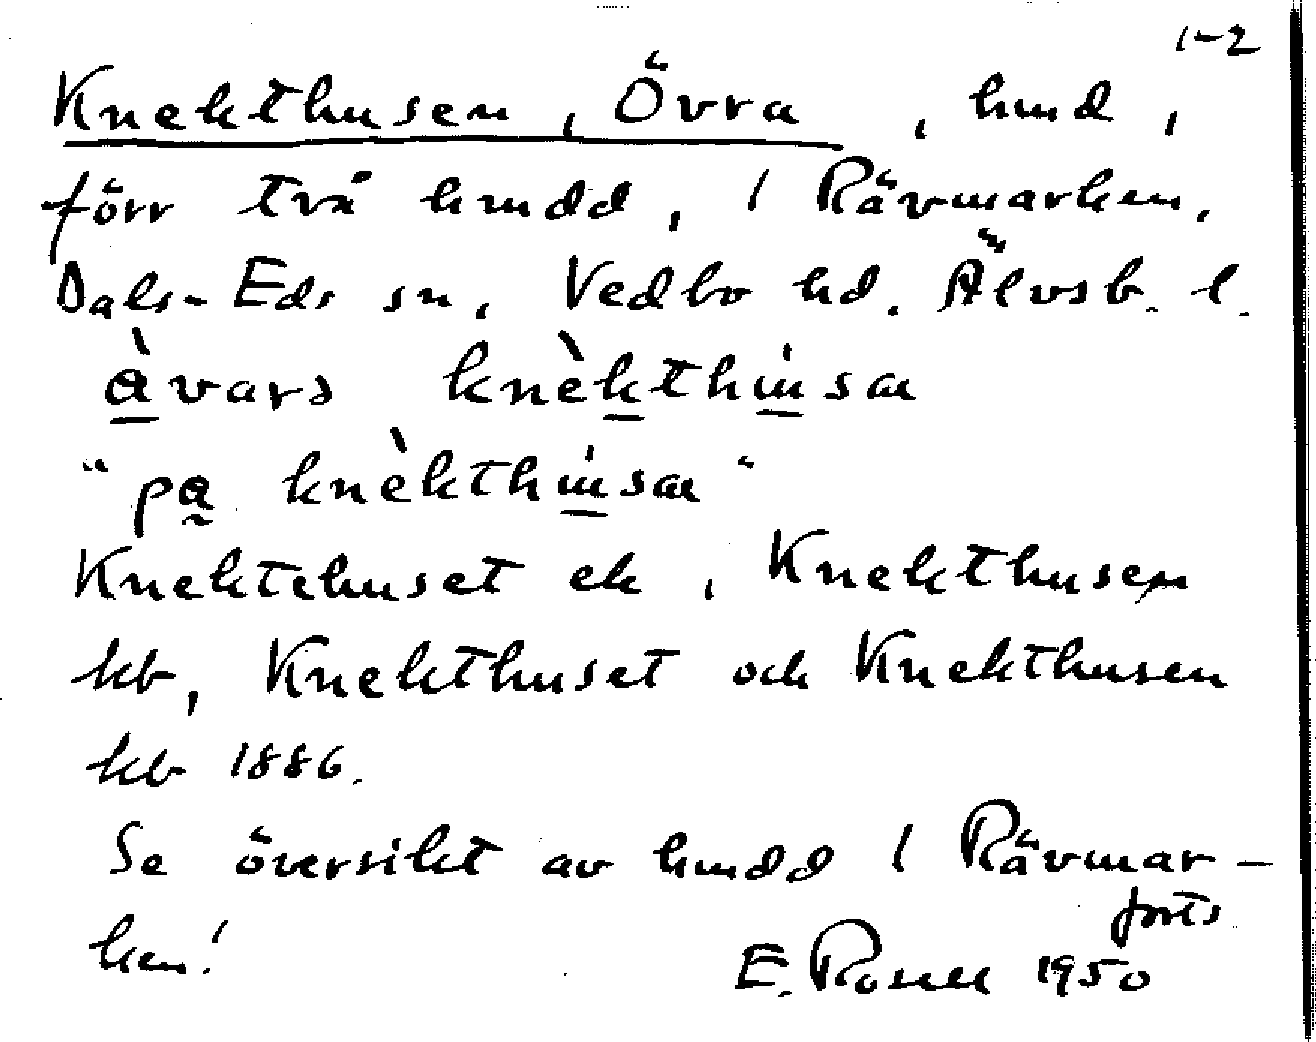 1-2
Knekthusen, Övra, hmd,
förr två hmdd, i Rävmarken,
Dals-Eds sn, Vedbo hd. Älvsb. l.
àvars knèkthu̇sa
"pa knèkthu̇sa"
Knektehuset ek, Knekthusen
kb, Knekthuset och Knekthusen
kb 1886.
Se översikt av hmdd i Rävmar-
ken!
forts
E. Rosell 1950